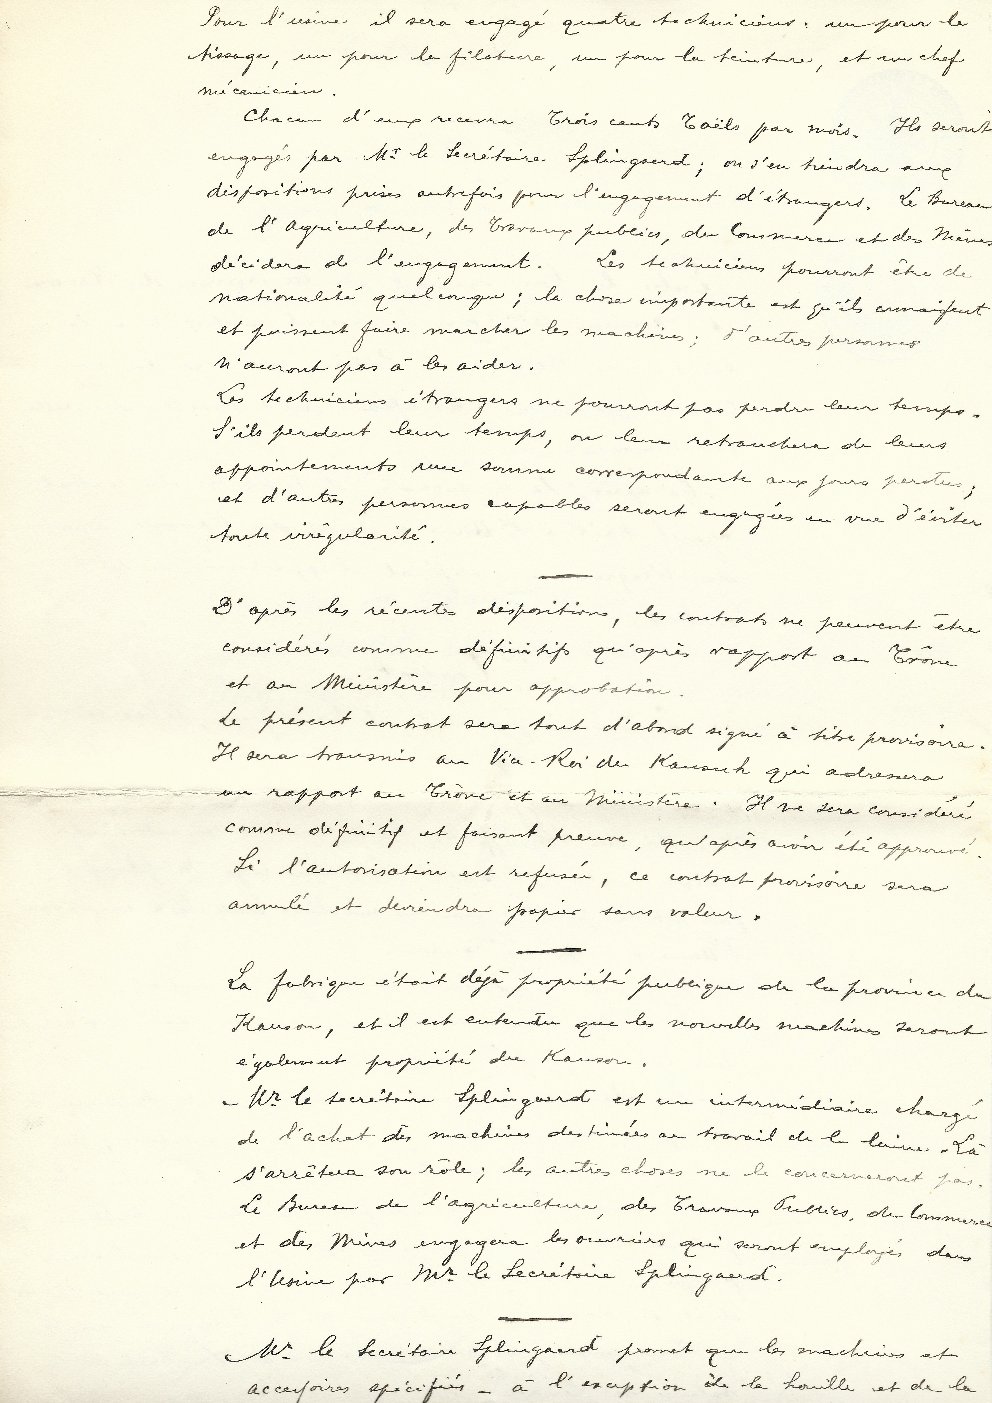 Pour l'usine il sera engagé quatre techniciens: un pour le
tissage, un pour la filature, un pour la teinture, et un chef
mécanicien.
Chacun d'eux recevra Trois cents Taëls par mois. Ils seront
engagés par Mr le Secrétaire Splingaerd; on s'en tiendra aux
dispositions prises autrefois pour l'engagement d'étrangers. Le Bureau
de l'Agriculture, des Travaux publics, du Commerce et des Mines
décidera de l'engagement. Les techniciens pourront être de
nationalité quelconque; la chose importante est qu'ils connaissent
et puissent faire marcher les machines; d'autres personnes
n'auront pas à les aider.
Les techniciens étrangers ne pourront pas perdre leur temps.
S'ils perdent leur temps, on leur retranchera de leurs
appointements une somme correspondante aux jours perdus;
et d'autres personnes capables seront engagées en vue d'éviter
toute irrégularité.
D'après les récentes dispositions, les contrats ne peuvent être
considérés comme définitifs qu'après rapport au Trône
et au Ministère pour approbation.
Le présent contrat sera tout d'abord signé à titre provisoire.
Il sera transmis au Vice-Roi du Kansuh qui adressera
un rapport au Trône et au Ministère. Il ne sera considéré
comme définitif et faisant preuve, qu'après avoir été approuvé.
Si l'autorisation est refusée, ce contrat provisoire sera
annulé et deviendra papier sans valeur.
La fabrique était déjà propriété publique de la province du
Kansou, et il est entendu que les nouvelles machines seront
également propriété du Kansou.
- Mr le secrétaire Splingaerd est un intermédiaire chargé
de l'achat des machines destinées au travail de la laine. Là
s'arrêtera son rôle; les autres choses ne le concerneront pas.
Le Bureau de l'agriculture, des Travaux Publics, du Commerce
et des Mines engagera les ouvriers qui seront employés dans
l'Usine par Mr le Secrétaire Splingaerd.
Mr le Secrétaire Splingaerd promet que les machines et
accessoires spécifiés - à l'exception de la houille et de la